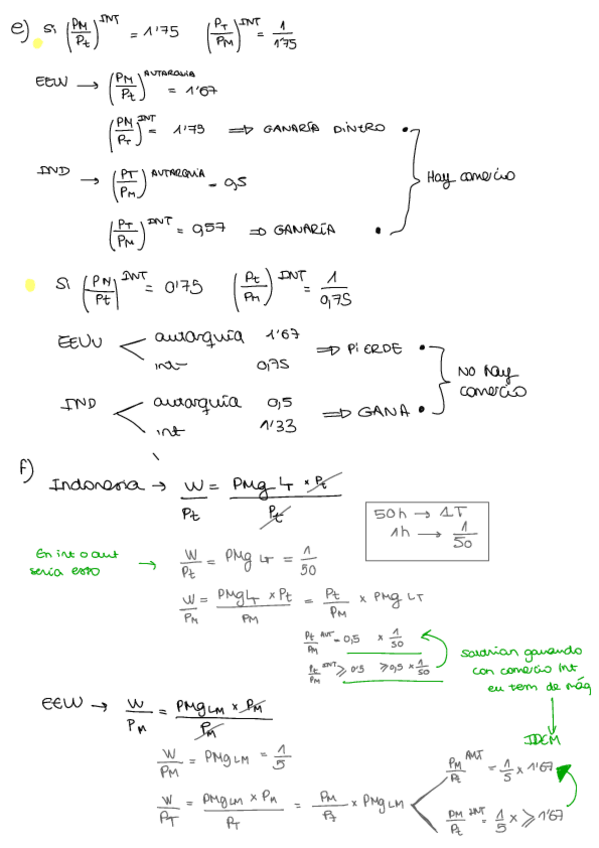 e) Si (PM/Pt)^INT = 1'75 (PT/PM)^INT = 1/1'75
EEUU → (PM/Pt)^AUTARQUIA = 1'67
(PM/PT)^INT = 1'75 ⇒ GANARÍA DINERO
IND → (PT/PM)^AUTARQUIA = 0,5
Hay comercio
(PT/PM)^INT = 0,57 ⇒ GANARÍA
Si (PM/Pt)^INT = 0'75 (Pt/PM)^INT = 1/0,75
EEUU < autarquía 1'67
int 0,75
⇒ PIERDE
IND < autarquía 0,5
int 1'33
⇒ GANA
No hay comercio
f)
Indonesia → W/Pt = PMg LT × Pt / Pt
50h → 1T
1h → 1/50
En int o aut sería esto → W/Pt = PMg LT = 1/50
W/PM = PMgLT × Pt / PM = Pt/PM × PMg LT
Pt/PM^AUT = 0,5 × 1/50
Pt/PM^INT ≥ 0'5 ≥ 0,5 × 1/50
Saldrían ganando
con comercio Int
en term de máq
EEUU → W/PM = PMgLM × PM / PM
IDEM
W/PM = PMgLM = 1/5
PM/Pt^AUT = 1/5 × 1'67
W/PT = PMgLM × PM / PT = PM/Pt × PMgLM
PM/Pt^INT = 1/5 × ≥ 1'67